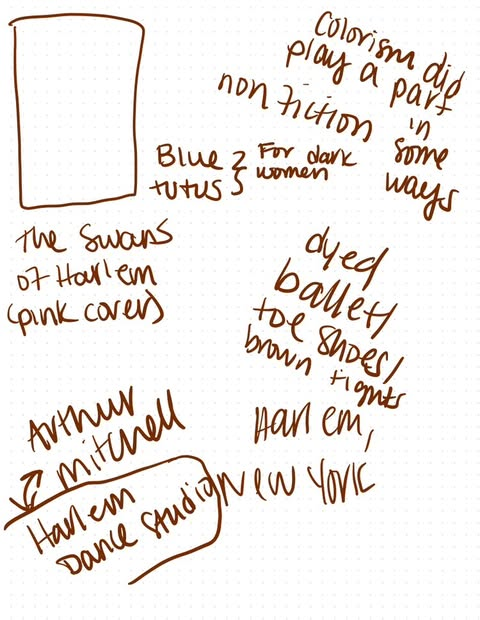 Colorism did
play a part
in
some
ways
non fiction
Blue
tutus
For dark
women
the Swans
of Harlem
(pink cover)
dyed
ballet/
toe shoes/
brown tights
Harlem,
New York
Arthur
Mitchell
Harlem
Dance Studio